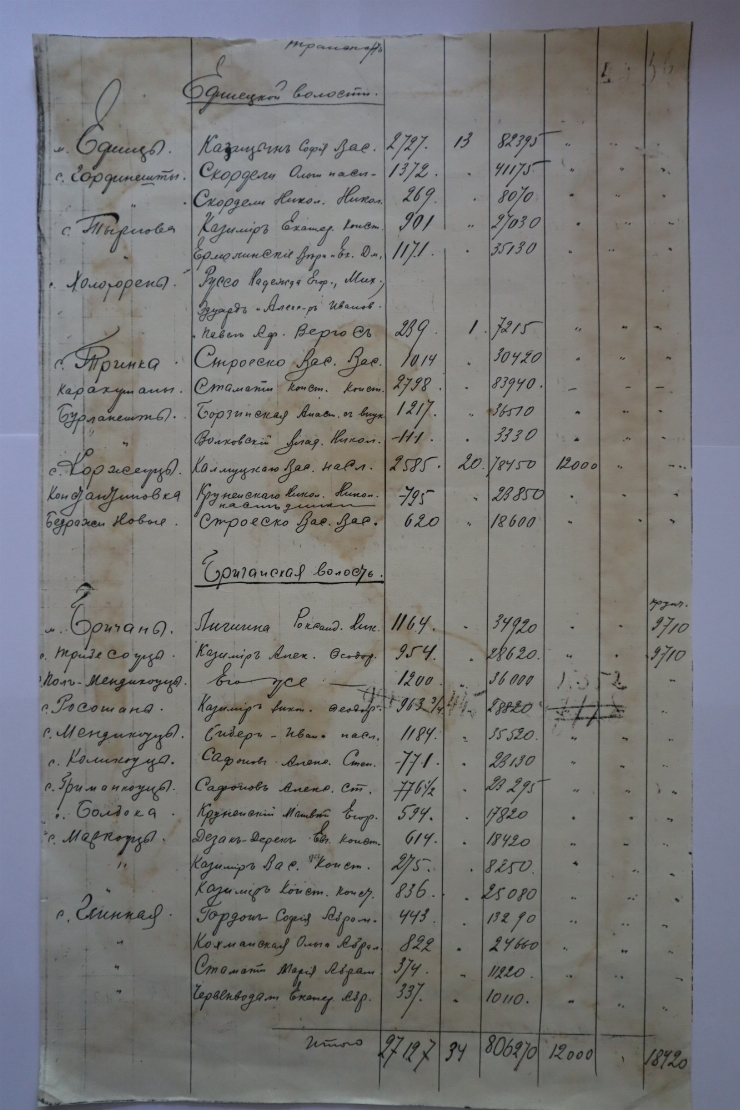 транспортъ
Единецкой волости.
м. Единцы. Казицынъ Софія Вас. 2727. 13 82395
с. Гординешты. Скордели насл. 1372. " 41175
" Скордели Никол. Никол. 269. " 8070
с. Тырнова Казиміръ Екатер. Конст. 901 " 27030
" 1171. " 35130
Руссо Надежда Егор., Мих.,
Эдуардъ Иванов.
Павелъ Аф. Вергосъ 239. 1. 7215
с. Тринка. Строеско Вас. Вас. 1014 " 30420
Каракушаны. Стамати Конст. Конст. 2798. " 83940.
Бурланешты. Борзинская 1217. " 36510
" Волковскій Влад. Никол. 111. " 3330
с. Коржеуцы. Вас. насл. 2585. 20. 78450 12000
Константиновка Крупенскаго Никол. Никол. 795 " 23850
наследники
Бедражи Новые. Строеско Вас. Вас. 620 " 18600
Бричанская волость.
м. Бричаны. Роксанд. 1164. " 34920 9710
Казиміръ Алек. Феодор. 954. " 28620. 9710
Мендикоуцы. Его же 1200. " 36000
с. Росошана. Казиміръ Викт. Феодор. 963 3/4 28820
с. Мендикоуцы. Иванъ насл. 1184. " 35520.
с. Коликоуцы. Сафоновъ Алекс. Степ. 771. " 23130
с. Гриманкоуцы. Сафоновъ Алекс. Ст. 776 1/2 " 23295
с. Болбока. Крупенскій Матвѣй Егор. 594. " 17820
с. Маркоуцы. Конст. 614. " 18420
" Казиміръ Вас. Конст. 275. " 8250.
Казиміръ Конст. Конст. 836. " 25080
с. Глинкая. Гордонъ Софія Абрам. 443 " 13290
" Кохманская Ольга Абрам. 822 " 24660
" Стамати Марія Абрам. 374. " 11220.
" Екатер. Абр. 337. " 10110.
Итого 27127 34 806270 12000 " 18420